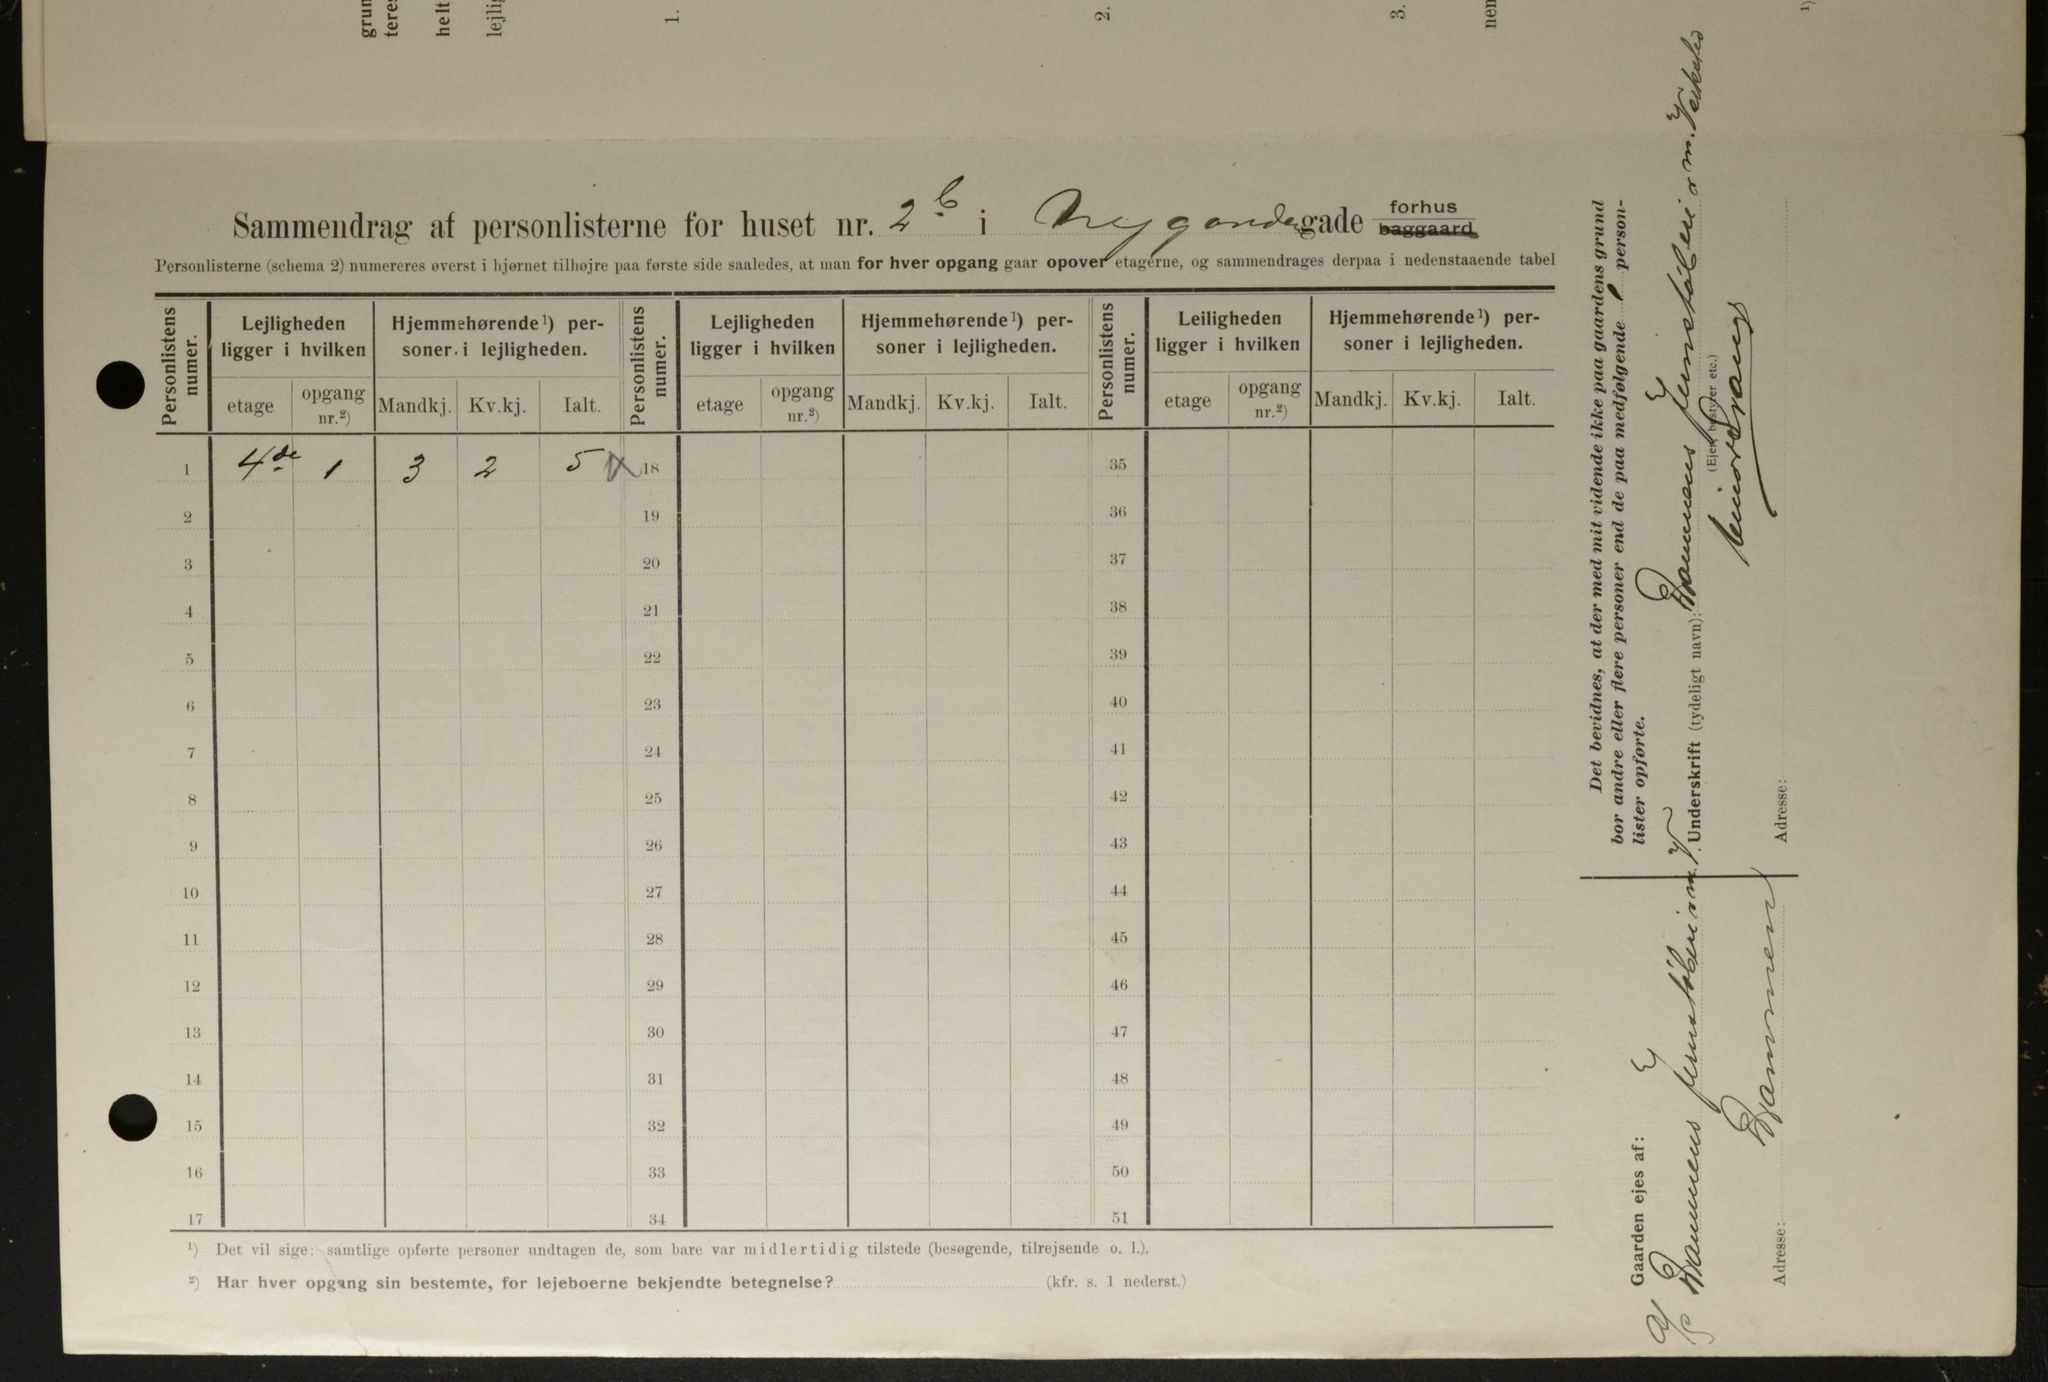 grun
teres
helt
lejlig
1.
2.
3.
nem
1)
Sammendrag af personlisterne for huset nr. 2b i Nygaards gade forhus baggaard
Personlisterne (schema 2) numereres øverst i hjørnet tilhøjre paa første side saaledes, at man for hver opgang gaar opover etagerne, og sammendrages derpaa i nedenstaaende tabel
Personlistens numer. Lejligheden ligger i hvilken Hjemmehørende 1) personer i lejligheden. Personlistens numer. Lejligheden ligger i hvilken Hjemmehørende 1) personer i lejligheden. Personlistens numer. Leiligheden ligger i hvilken Hjemmehørende 1) personer i lejligheden.
etage opgang nr.2) Mandkj. Kv.kj. Ialt. etage opgang nr.2) Mandkj. Kv.kj. Ialt. etage opgang nr.2) Mandkj. Kv.kj. Ialt.
1 4de 1 3 2 5 18 35
2 19 36
3 20 37
4 21 38
5 22 39
6 23 40
7 24 41
8 25 42
9 26 43
10 27 44
11 28 45
12 29 46
13 30 47
14 31 48
15 32 49
16 33 50
17 34 51
1) Det vil sige: samtlige opførte personer undtagen de, som bare var midlertidig tilstede (besøgende, tilrejsende o. l.).
2) Har hver opgang sin bestemte, for lejeboerne bekjendte betegnelse? (kfr. s. 1 nederst.)
Det bevidnes, at der med mit vidende ikke paa gaardens grund
bor andre eller flere personer end de paa medfølgende 1 person-
lister opførte.
Underskrift (tydeligt navn): Drammens Jernstøberi & m. Værksted
(Ejer, bestyrer etc.)
Adresse:
Gaarden ejes af:
A/S Drammens Jernstøberi & m. V.
Adresse: Drammen